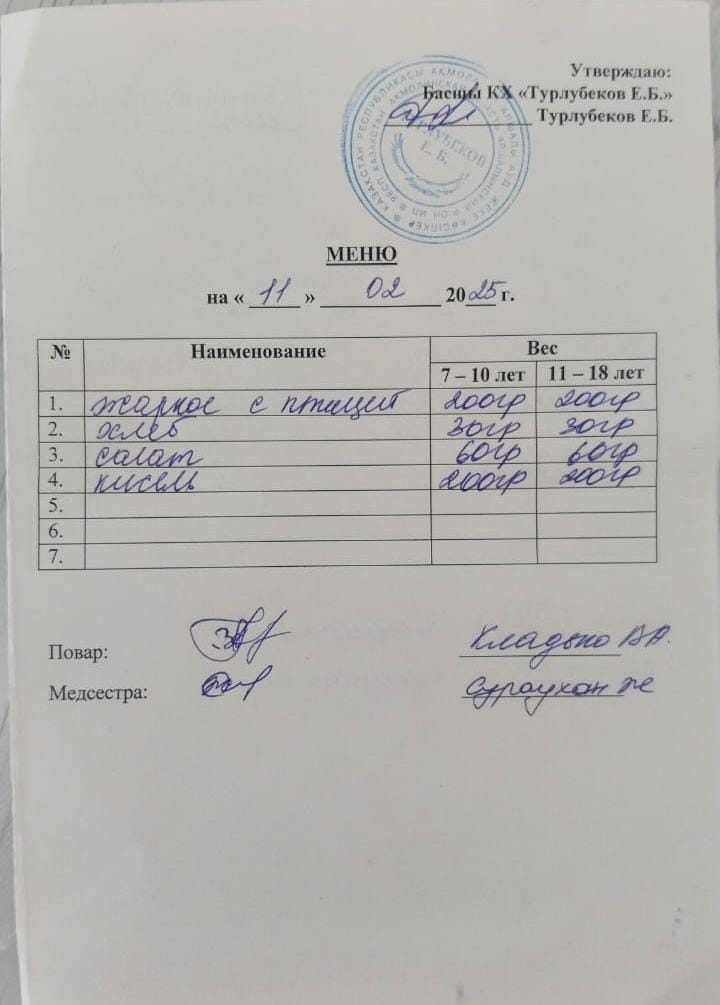 Утверждаю:
Басшы КХ «Турлубеков Е.Б.»
Турлубеков Е.Б.
ҚАЗАҚСТАН РЕСПУБЛИКАСЫ АҚМОЛА АРШАЛЫ АУД. ЖЕКЕ КӘСІПКЕР
РЕСП. КАЗАХСТАН АКМОЛИНСКАЯ ОБЛАСТЬ АРШАЛЫНСКИЙ Р-ОН ИП
ТУРЛУБЕКОВ
Е. Б.
МЕНЮ
на « 11 » 02 2025 г.
№ Наименование Вес
7 – 10 лет 11 – 18 лет
1. жаркое с птицей 200гр 200гр
2. хлеб 30гр 30гр
3. салат 60гр 60гр
4. кисель 200гр 200гр
5.
6.
7.
Повар: Кладько В.А.
Медсестра: